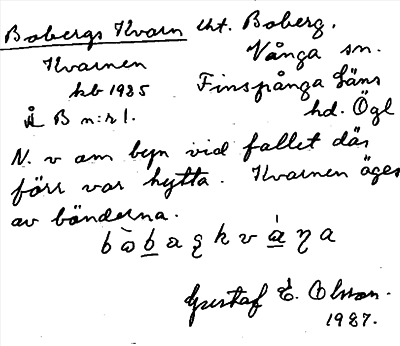 Bobergs Kvarn Uht. Boberg.
Kvarnen Vånga sn.
kb 1985 Finspånga Läns
Å B n:r 1. hd. Ögl
N. v om byn vid fallet där
förr var hytta. Kvarnen äges
av bönderna.
Gustaf E. Olsson.
1987.